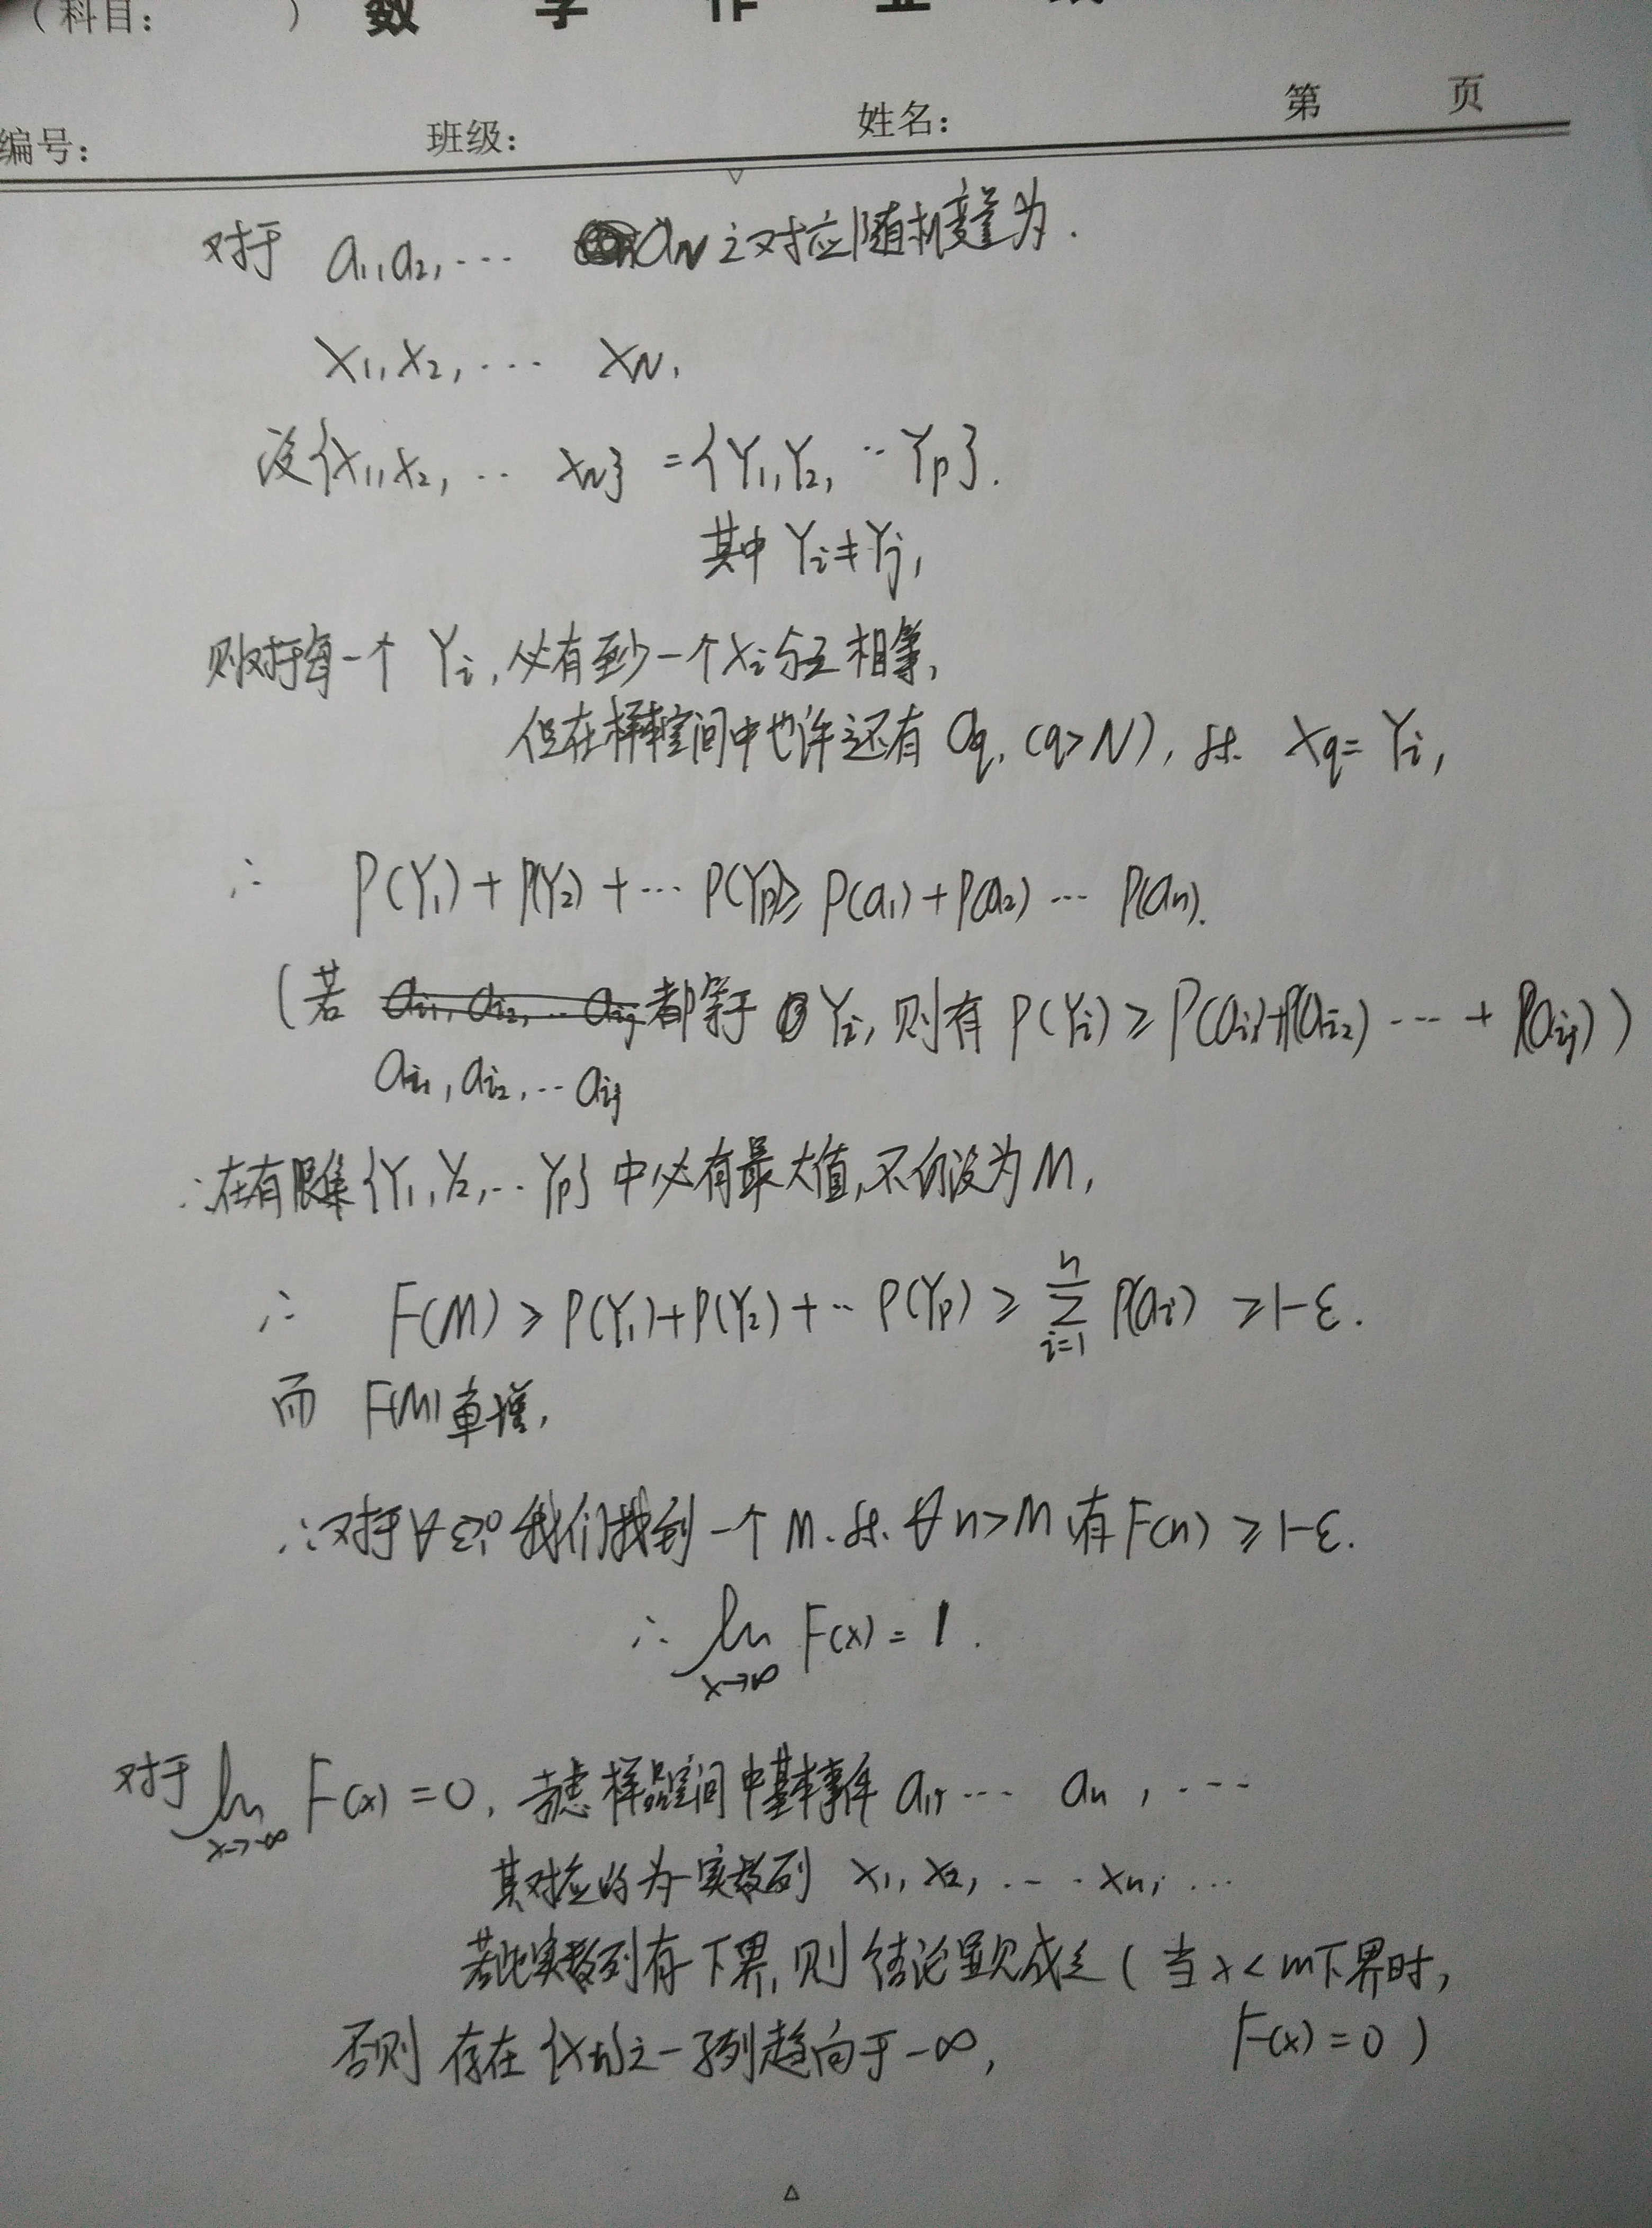 （科目： ） 数 学 作 业
编号： 班级： 姓名： 第 页
对于 a₁,a₂,··· aN之对应随机变量为.
X₁,X₂,··· XN,
设{X₁,X₂,·· XN} ={Y₁,Y₂,··Yp}.
其中 Yi≠Yj,
则对于每一个 Yi,必有至少一个Xi与之相等,
但在样本空间中也许还有 aq,(q>N),st. Xq=Yi,
∴ P(Y₁)+P(Y₂)+···P(Yp)≥P(a₁)+P(a₂)··· P(an).
(若 ai₁,ai₂,··aij 都等于 Yi,则有 P(Yi)≥P(ai₁)+P(ai₂)····+P(aij))
ai₁,ai₂,··aij
∴在有限集{Y₁,Y₂,··Yp}中必有最大值,不仿设为M,
∴ F(M)≥P(Y₁)+P(Y₂)+··P(Yp)≥ⁿΣᵢ₌₁P(ai) ≥1-ε.
而 F(M)单增,
∴对于∀ε>0 我们找到一个M.st.∀n>M有F(n)≥1-ε.
∴ lim x→∞ F(x)=1.
对于 lim x→-∞ F(x)=0, 考虑样品空间中基本事件 a₁,··· an,···
其对应的为一实数列 x₁,x₂,···xn,···
若此实数列有下界,则结论显见成立(当x<m下界时,
否则 存在{xn}之一子列趋向于-∞, F(x)=0)